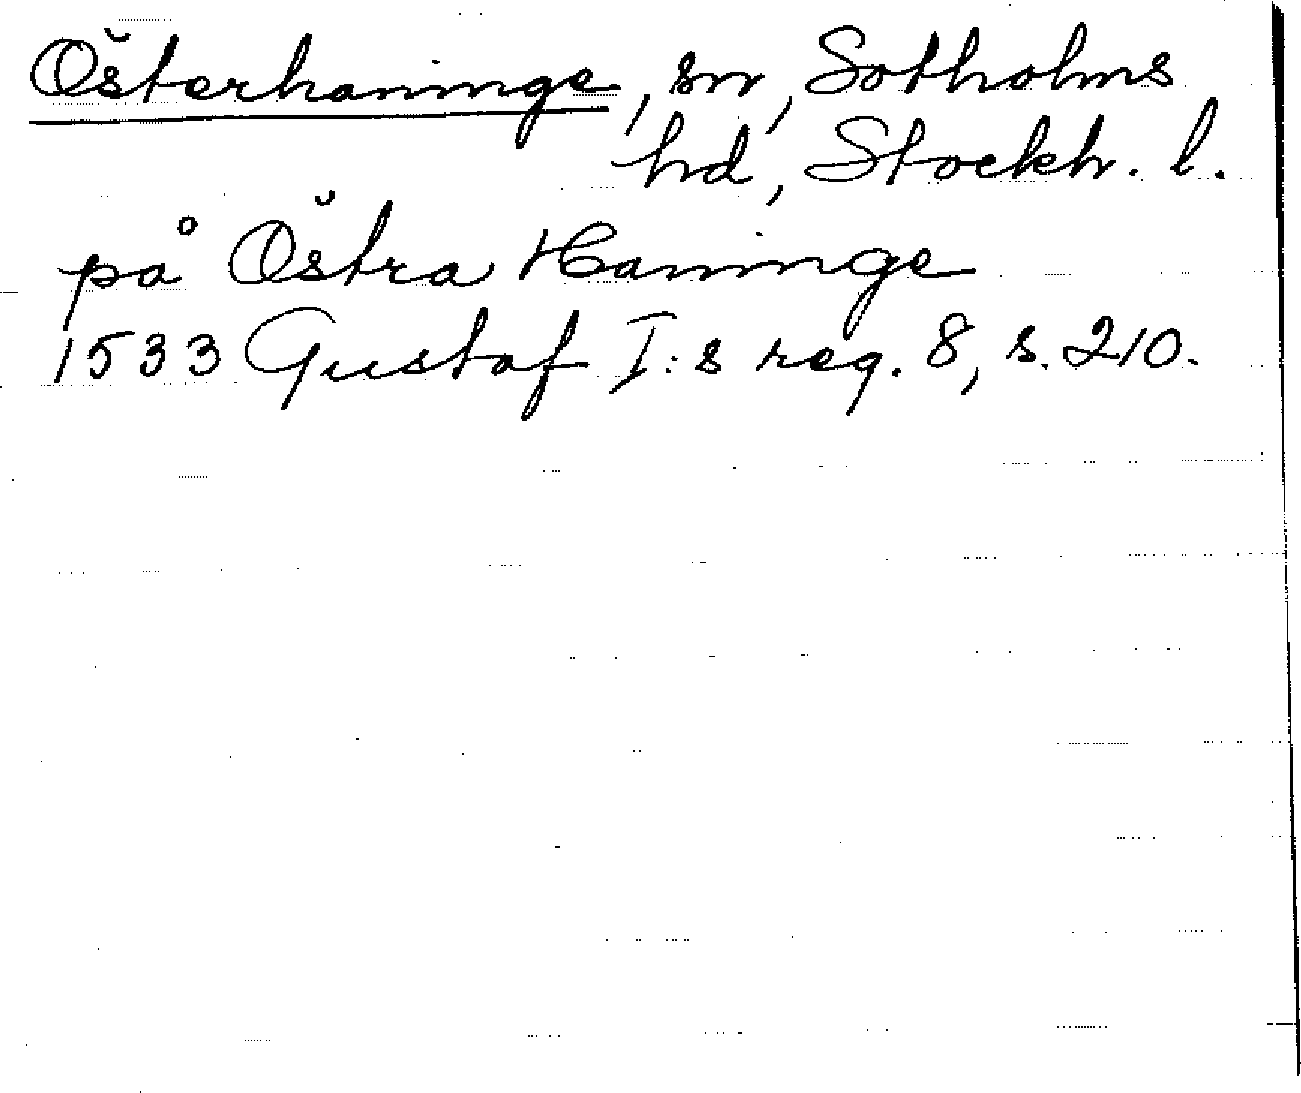 Österhaninge, sn, Sotholms
hd, Stockh. l.
på Östra Haninge
1533 Gustaf I:s reg. 8, s. 210.